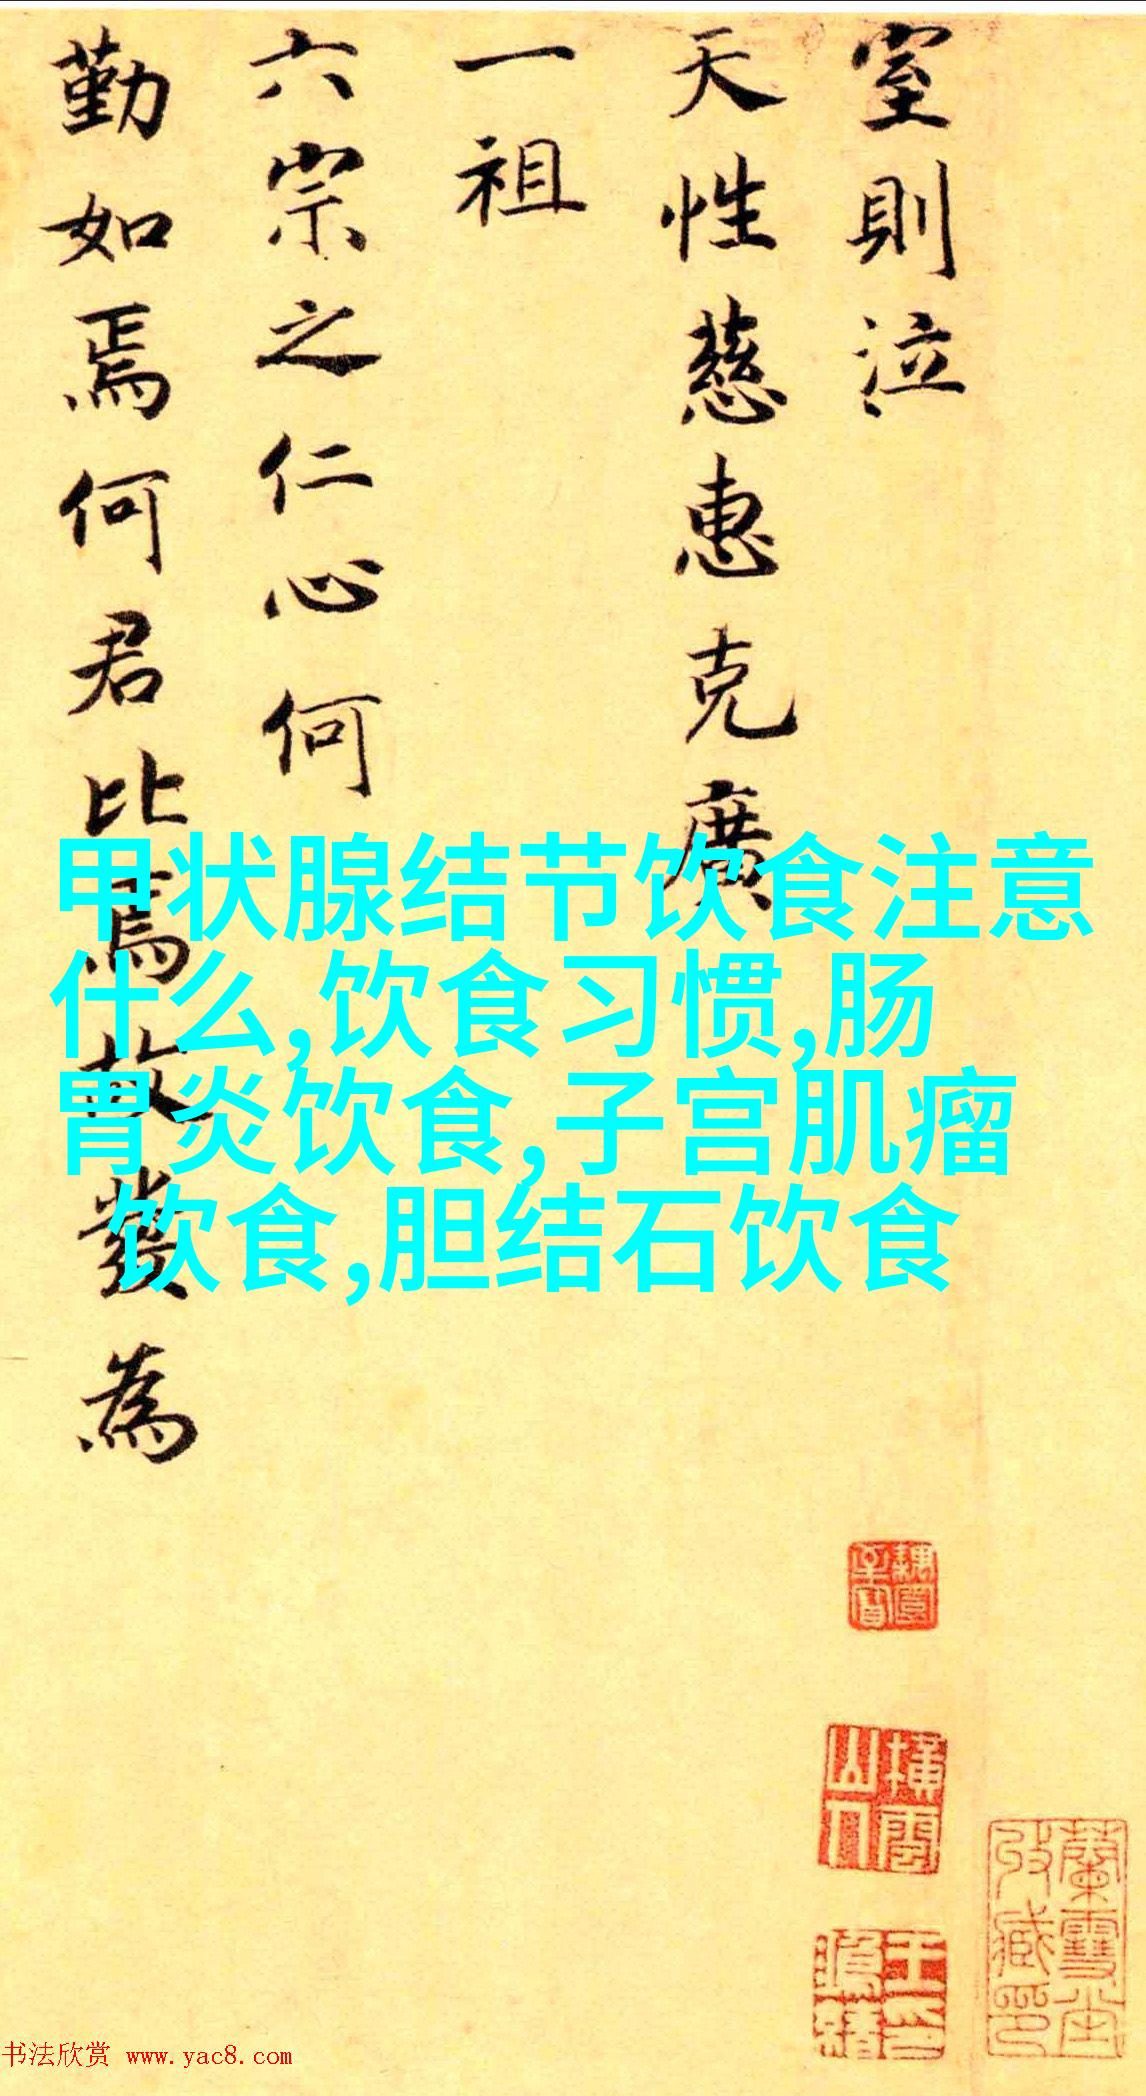 室則泣
天性慈惠克廣
一祖
六宗之仁心何
勤如焉何君比焉故發為
甲状腺结节饮食注意
什么,饮食习惯,肠
胃炎饮食,子宫肌瘤
饮食,胆结石饮食
横雲山人
蘭雪堂收藏印
书法欣赏 www.yac8.com